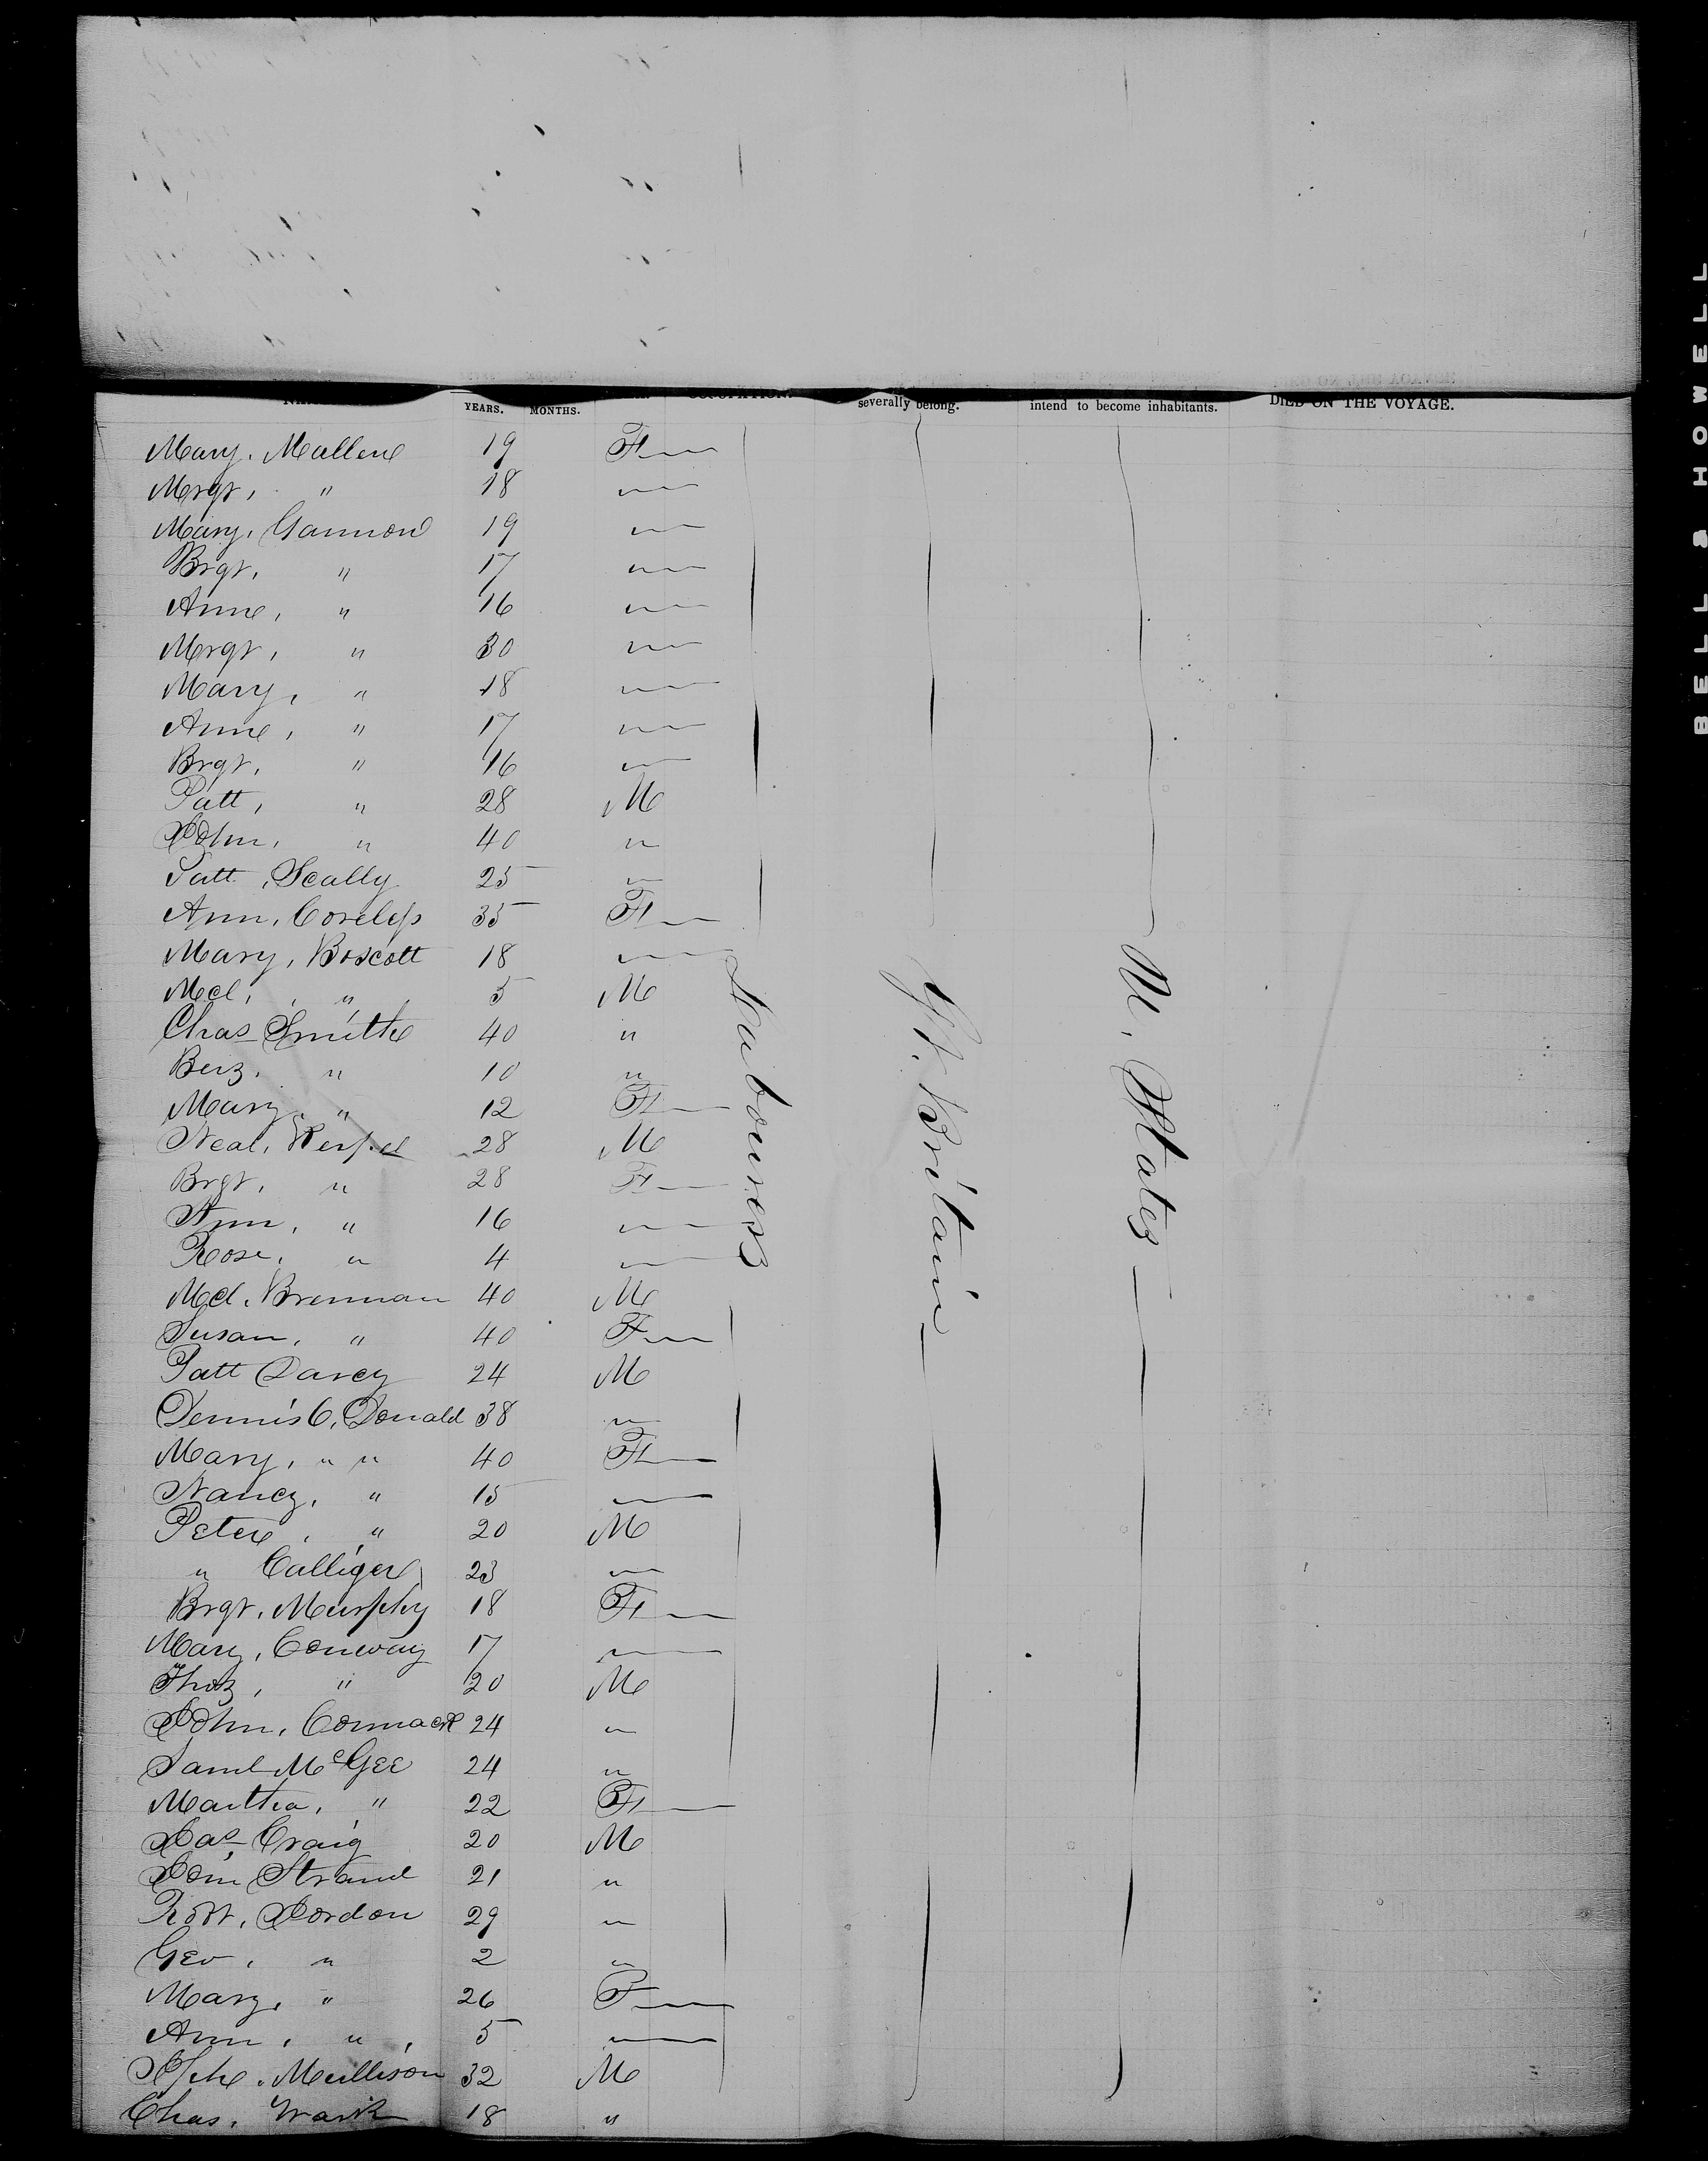 YEARS. MONTHS. severally belong. intend to become inhabitants. DIED ON THE VOYAGE.
Mary. Mallene 19 F
Mrgt, " 18 "
Mary, Gannon 19 "
Brgt, " 17 "
Anne, " 16 "
Mrgt, " 30 "
Mary, " 18 "
Anne, " 17 "
Brgt, " 16 "
Patt, " 28 M
John, " 40 "
Patt, Scally 25 "
Ann, 35 F
Mary, Boscott 18 "
Mcl, " 5 M
Chas Smith 40 "
" 10 "
Mary " 12 F
Neal, 28 M
Brgt, " 28 F
Ann, " 16 "
Rose, " 4 "
Mcl. Brennan 40 M
Susan, " 40 F
Patt Darcy 24 M
Dennis O, Donald 38 "
Mary, " " 40 F
Nancy, " 15 "
Peter, " 20 M
" Calliger 23 "
Brgt. Murphy 18 F
Mary, Conway 17 "
Thos, " 20 M
John, Cormack 24 "
Saml McGee 24 "
Martha, " 22 F
Jas Craig 20 M
Strand 21 "
Robt, Jordon 29 "
Geo, " 2 "
Mary, " 26 F
Ann, " 5 "
Mullison 32 M
Chas. 18 "
Labourers
Gt. Britain
U. States
BELL & HOWELL